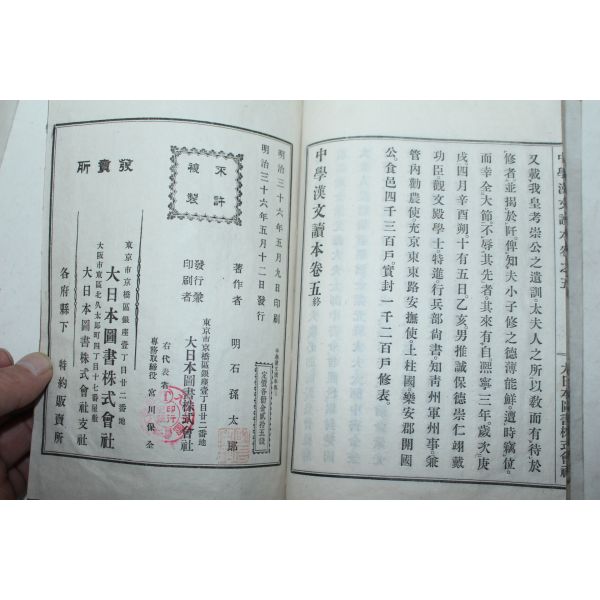 中學漢文讀本卷之五
大日本圖書株式會社
又載我皇考崇公之遺訓、太夫人之所以敎而有待於
修者、並揭於阡、俾知夫小子修之德薄能鮮、遭時竊位、
而幸全大節、不辱其先者、其來有自、熙寧三年、歲次庚
戌四月辛酉朔十有五日乙亥、男推誠保德崇仁翊戴
功臣、觀文殿學士、特進、行兵部尙書、知靑州軍州事、兼
管內勸農使、充京東東路安撫使、上柱國、樂安郡開國
公、食邑四千三百戶、實封一千二百戶修表。
中學漢文讀本卷五終
明治三十六年五月九日印刷
明治三十六年五月十二日發行
定價各冊金貳拾五錢
不許複製
著作者 明石孫太郎
發行兼印刷者
東京市京橋區銀座壹丁目廿二番地
大日本圖書株式會社
右代表者
專務取締役 宮川保全
發賣所
東京市京橋區銀座壹丁目廿二番地
大日本圖書株式會社
大阪市東區北久太郎町四丁目十七番屋敷
大日本圖書株式會社支社
各府縣下 特約販賣所